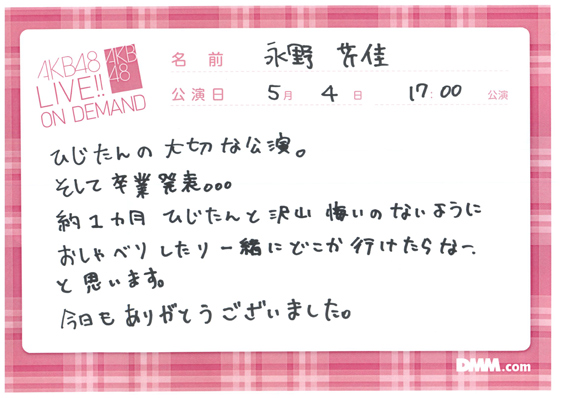 AKB48
LIVE!!
ON DEMAND
AKB
48
名前 永野 芹佳
公演日 5月 4日 17:00 公演
ひじたんの 大切な公演。
そして卒業発表。。。
約1カ月 ひじたんと沢山 悔いのないように
おしゃべりしたり一緒にどこか行けたらなー
と思います。
今日もありがとうございました。
DMM.com